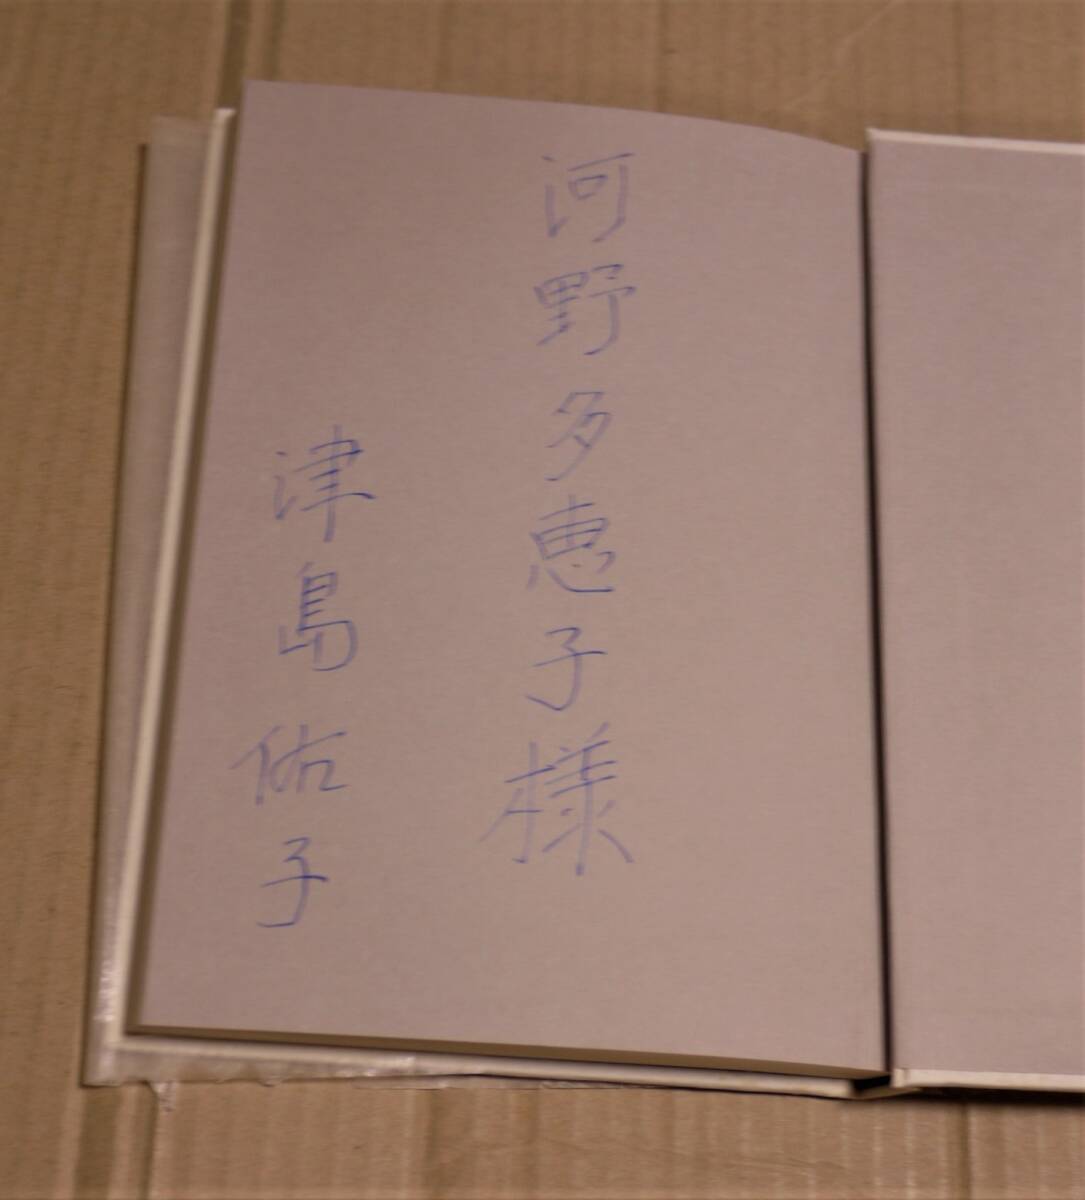 河野多恵子様
津島佑子